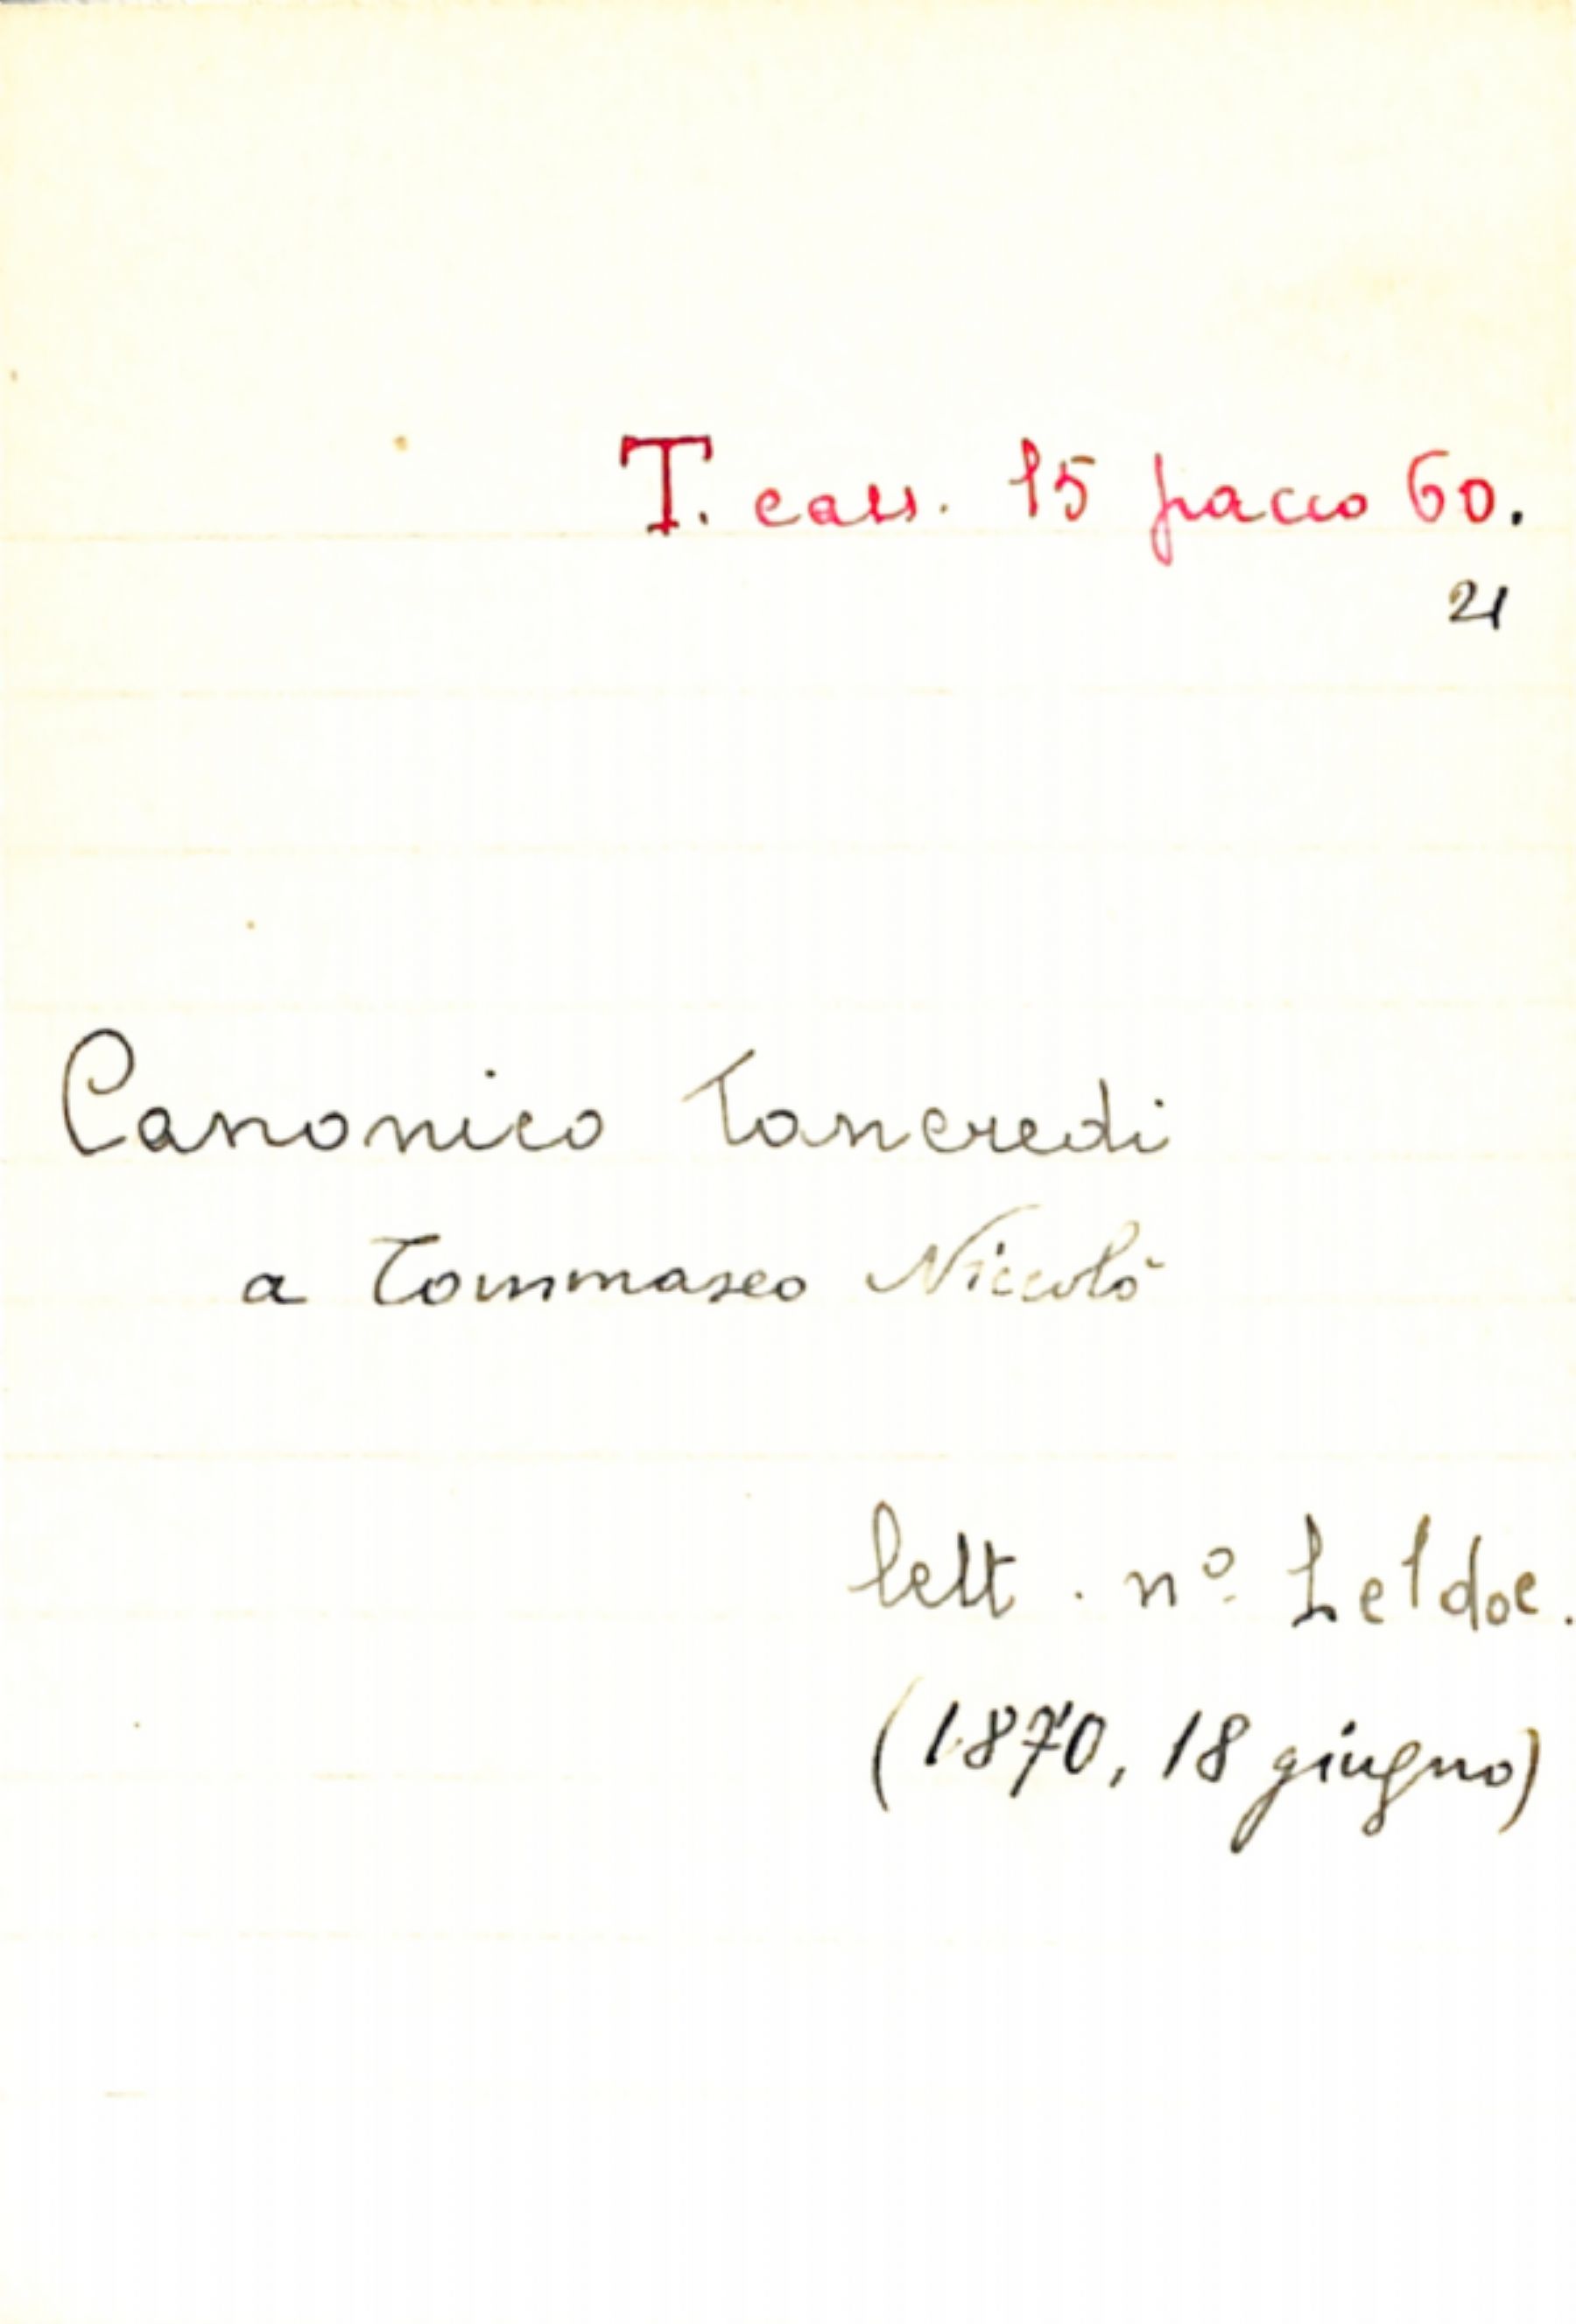 T. cass. 15 pacco 60.
21
Canonico Tancredi
a Tommaseo Niccolò
lett. nº 1 e 1 doc.
(1870, 18 giugno)